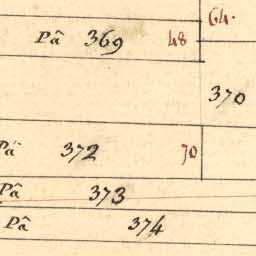 64.
Pâ 369 48
370
Pâ 372 70
Pâ 373
Pâ 374